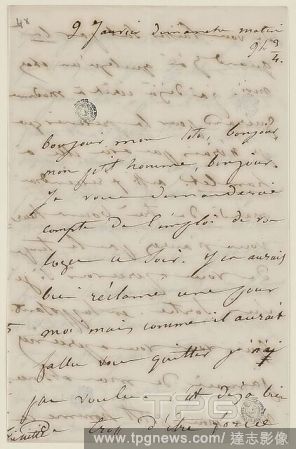 2 Janvier dimanche matin
9h ¾.
bonjour mon Toto, bonjour
mon ptit homme bonjour.
Je vous demanderai
compte de l'emploi de vos
loges ce soir. J'en aurais
bien réclamé une pour
moi mais comme il aurait
fallu vous quitter je n'ai
pas voulu. C'est déjà bien
trop d'être forcée
TPG
www.tpgnews.com / 達志影像